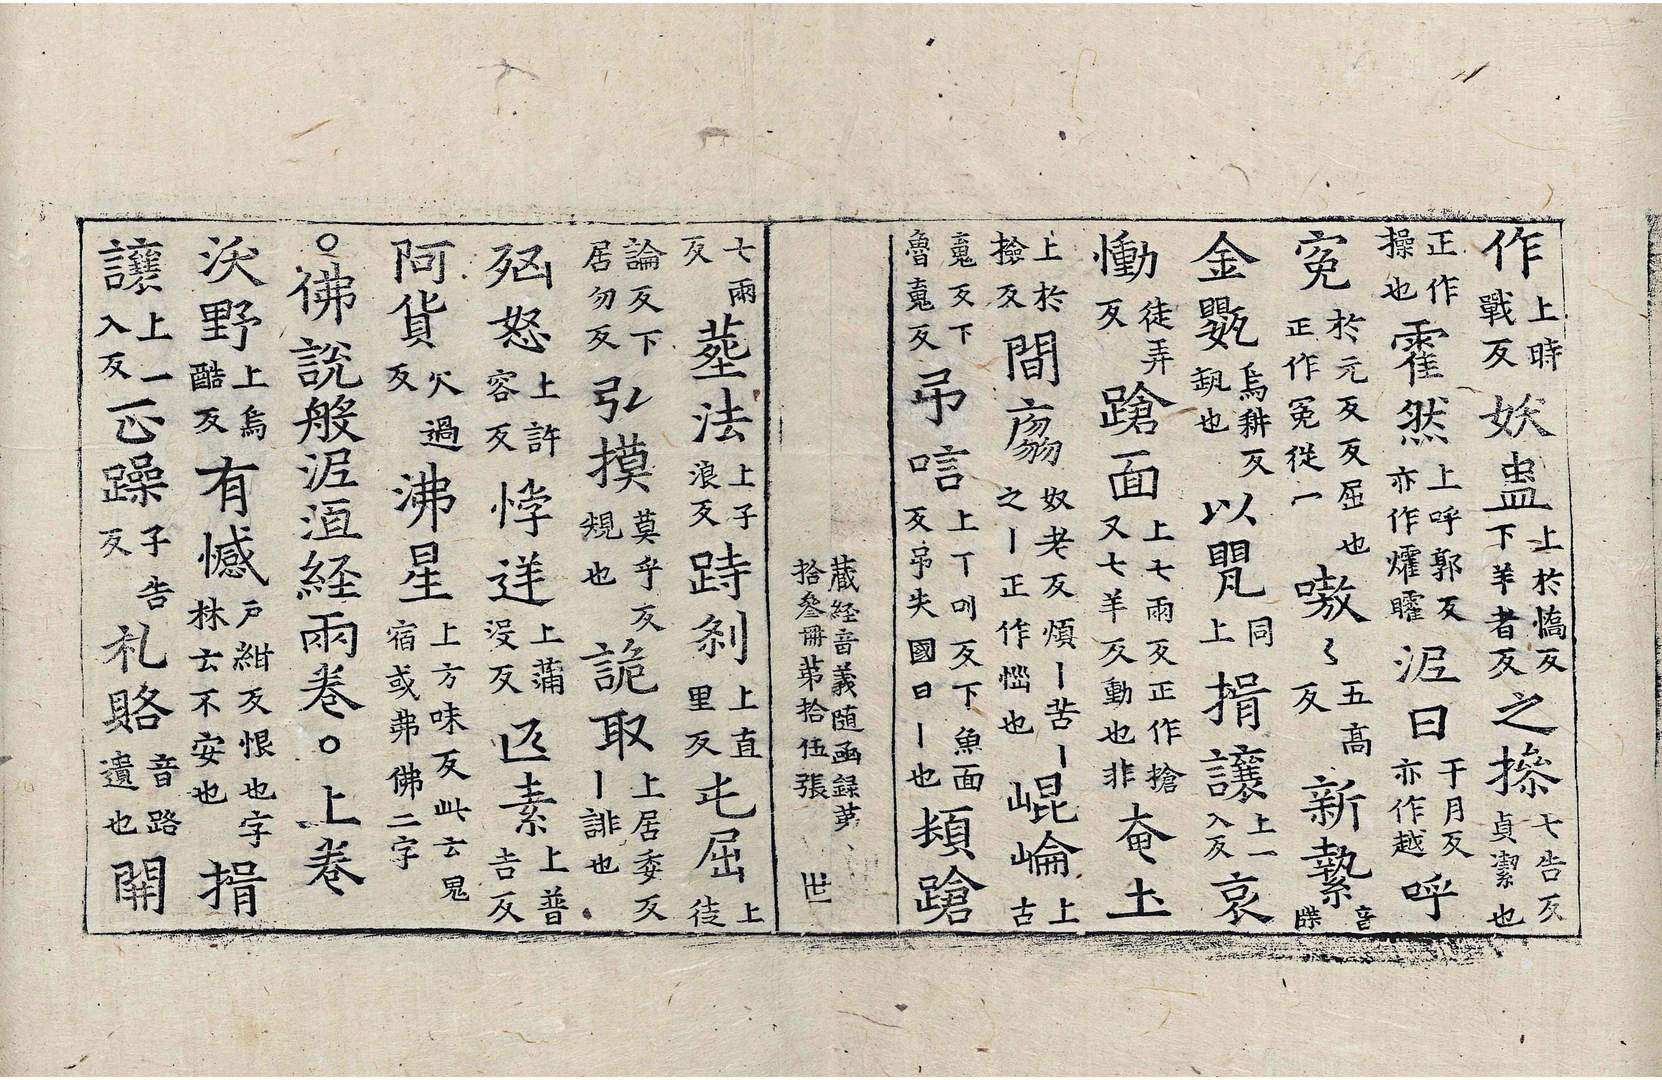 作上時戰反妖蛊上於憍反下羊者反之摻七告反貞潔也
正作操也霍然上呼郭反亦作㸌矐泥曰于月反亦作越呼
寃於元反反屈也正作冤從一嗷〻五髙反新蓻音牒
金甖烏耕反瓨也以甖同上揖讓上一入反哀
慟徒弄反蹌面上七兩反正作搶又七羊反動也非奄土
上於撿反間㛴奴老反煩丨苦丨之丨正作㛴也崐崘上古
䰟反下魯䰟反吊唁上丁叫反下魚面反吊失國曰丨也頬蹌
藏经音義随函録苐、
拾叄冊苐拾伍張 世
七兩反塟法上子浪反跱剎上直里反屯屈上徒
論反下居勿反弘摸莫乎反䂓也詭取上居委反丨誹也
殈怒上許容反悖逆上蒲没反匹素上普吉反
阿貨火過反沸星上方味反此云鬼宿或弗佛二字
○佛說般泥洹经兩卷○上卷
沃野上烏酷反有憾戶紺反恨也字林云不安也揖
讓上一入反正躁子告反札賂音路遺也開